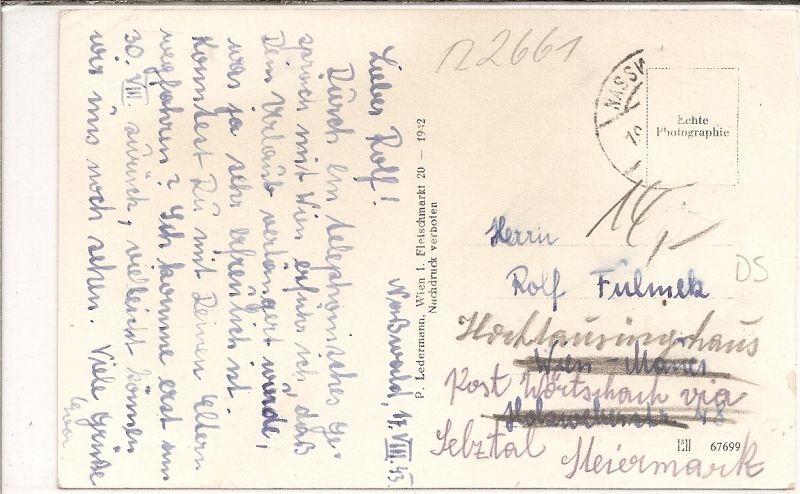 Naßwald, 17. VIII. 43.
Lieber Rolf!
Durch ein telephonisches Ge-
spräch mit Wien erfuhr ich, daß
Dein Urlaub verlängert wurde,
was ja sehr erfreulich ist.
Konntest Du mit Deinen Eltern
wegfahren? Ich komme erst am
30. VIII. zurück, vielleicht können
wir uns noch sehen. Viele Grüße
P. Ledermann, Wien I. Fleischmarkt 20 — 1942
Nachdruck verboten
n2661
NASSW
Echte
Photographie
14,-
Herrn
Rolf Fulmek
DS
Hochtausinghaus
Wien-Mauer
Post Wörschach via
48
Selztal
Steiermark
67699